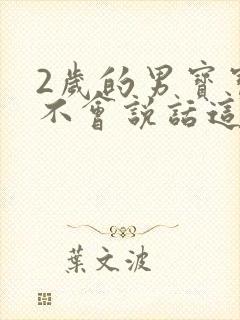 2歲的男寶寶
不會說話這
葉文波